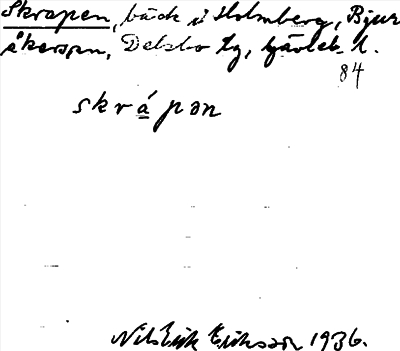 Skrapen, bäck i Holmberg, Bjur
åkers sn, Delsbo tg, Gävleb. l.
84
skrápǝn
Nils Erik Eriksson 1936.